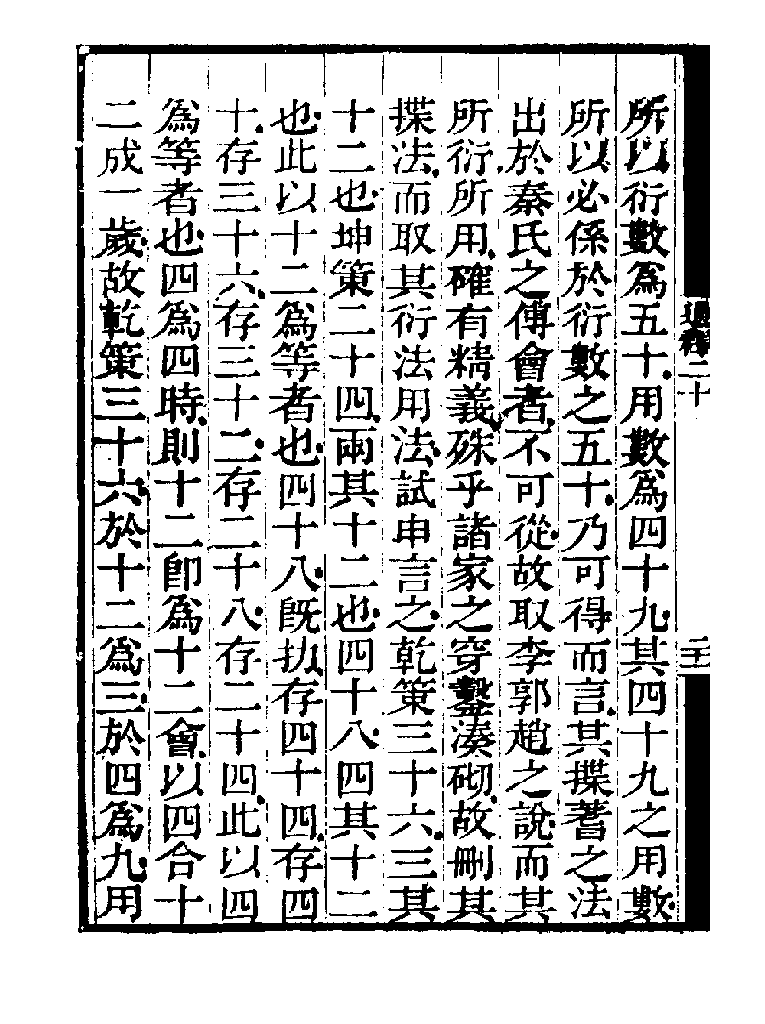 所以衍數爲五十用數爲四十九其四十九之用數
所以必係於衍數之五十乃可得而言其揲蓍之法
出於秦氏之傅會者不可從故取李郭趙之說而其
所衍所用確有精義硃乎諸家之穿鑿湊砌故刪其
揲法而取其衍法用法試申言之乾策三十六三其
十二也坤策二十四兩其十二也四十八四其十二
也此以十二爲等者也四十八旣扐存四十四存四
十存三十六存三十二存二十八存二十四此以四
爲等者也四爲四時則十二卽爲十二會以四合十
二成一歲故乾策三十六於十二爲三於四爲九用
二十